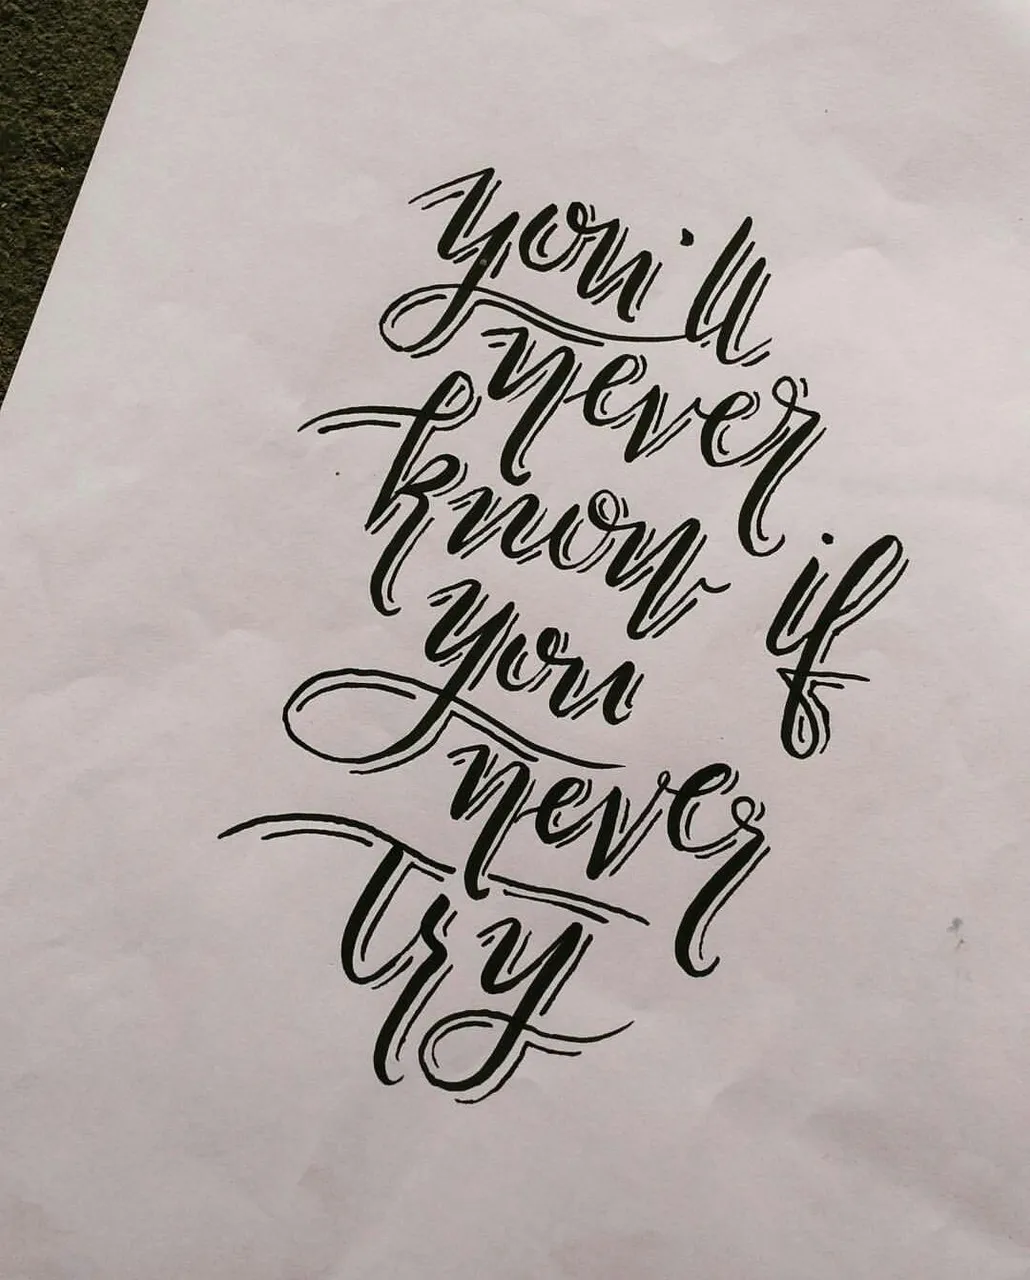 you'll
never
know if
you
never
try